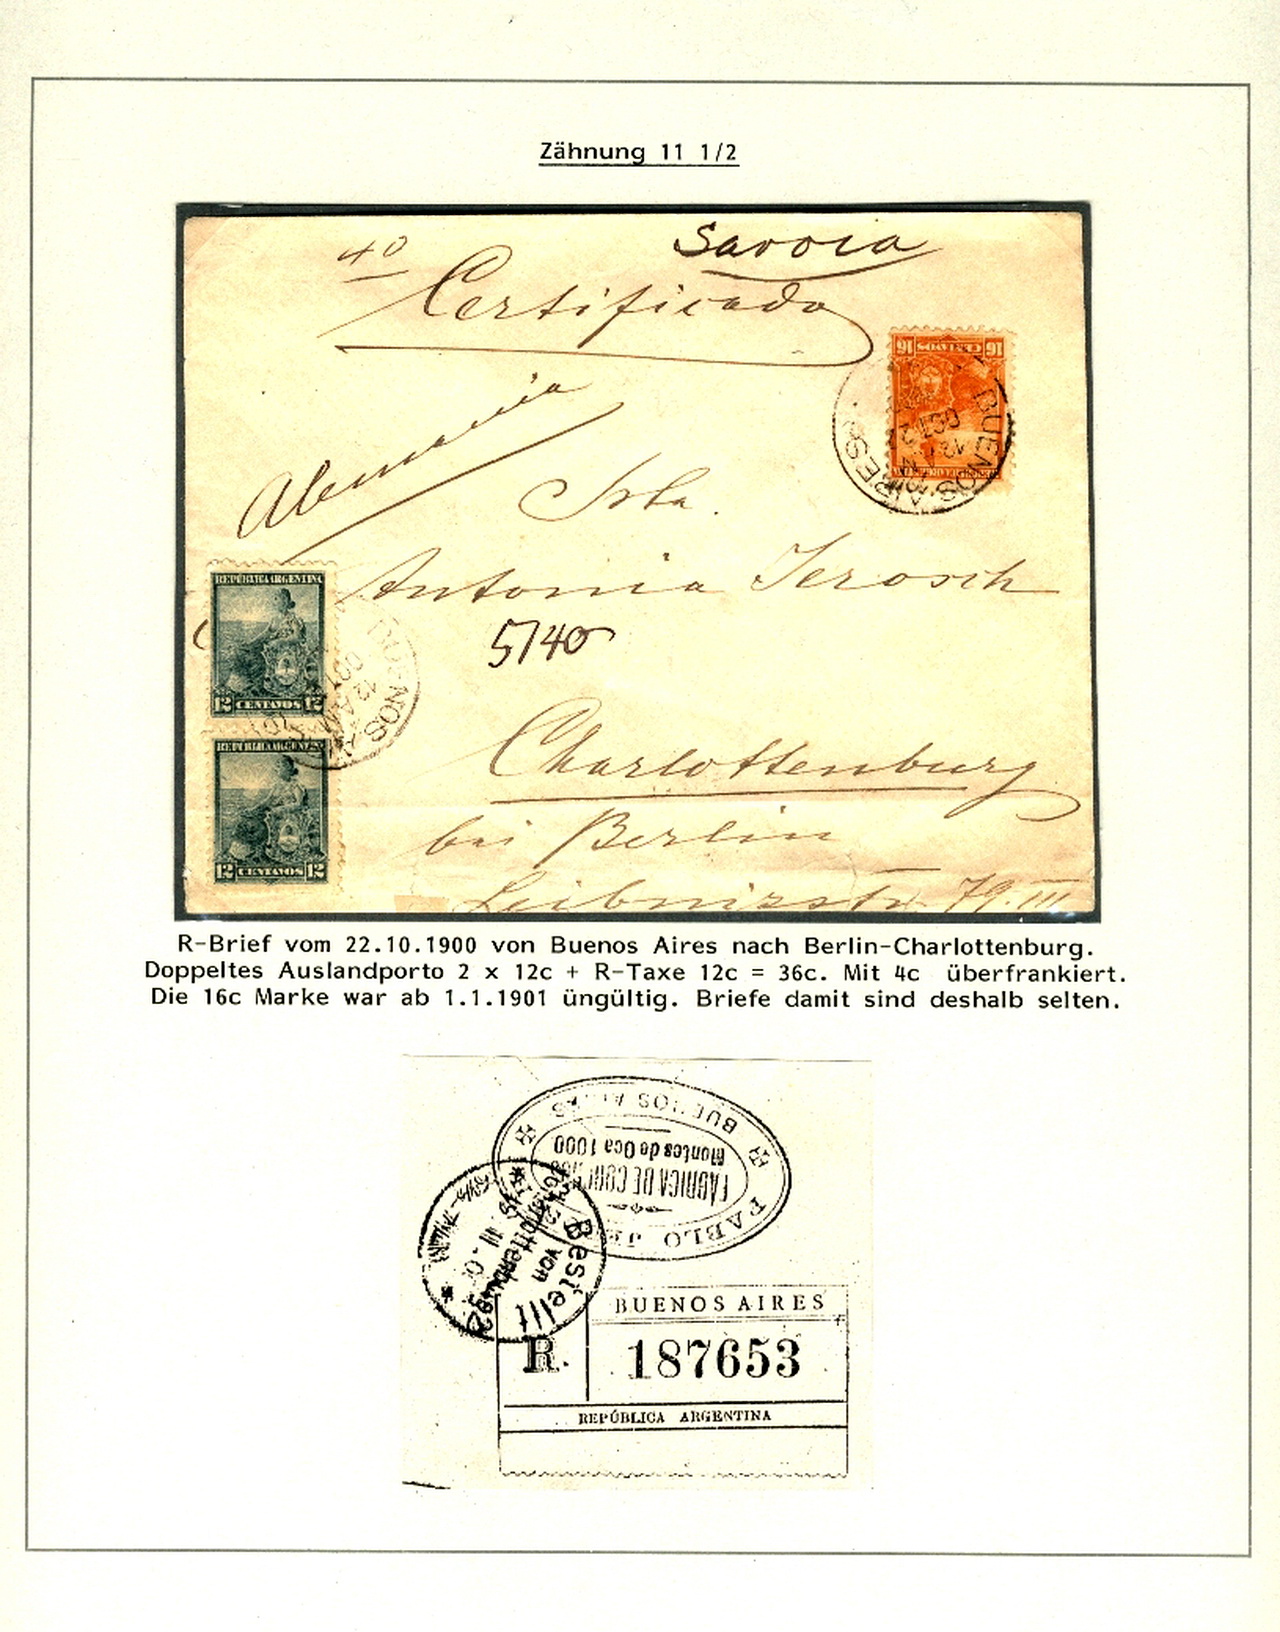 Zähnung 11 1/2
40
Savoia
Certificado
Alemania
16 CENTAVOS 16
BUENOS AIRES
OCT
12
Srta.
Antonia Jerosch
5740
REPÚBLICA ARGENTINA
12 CENTAVOS 12
BUENOS A
OCT
12 AM
REPÚBLICA ARGENTINA
12 CENTAVOS 12
Charlottenburg
bei Berlin
Leibnizstr. 79. III
R-Brief vom 22.10.1900 von Buenos Aires nach Berlin-Charlottenburg.
Doppeltes Auslandporto 2 x 12c + R-Taxe 12c = 36c. Mit 4c überfrankiert.
Die 16c Marke war ab 1.1.1901 üngültig. Briefe damit sind deshalb selten.
BUENOS AIRES
Montes de Oca 1000
FÁBRICA DE
PABLO
Bestellt
von
Charlottenburg
BUENOS AIRES
R. 187653
REPÚBLICA ARGENTINA